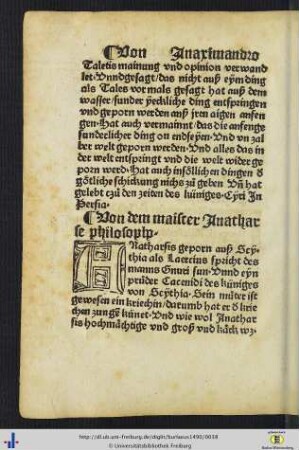 ¶Von Anaximandro
Taletis mainung vnd opinion verwand
let·Vnnd gesagt/das nicht auß eym ding
als Tales vor mals gesagt hat auß dem
wasser/sunder yeckliche ding entspringen
vnd geporn werden auß jren aigen anfen
gen·Hat auch vermaint/das die anfenge
sunderlicher ding on end seyen·Vnd vnzal
ber welt geporn werden·Vnd alles das in
der welt entspringt vnd die welt wider ge
porn werd·Hat auch in söllichen dingen d
götliche schickung nichs zů geben Vñ hat
gelebt czů den zeiten des küniges Cyri In
Persia·
¶Von dem maister Anathar
se philosopho·
ANatharsis geporn auß Scy
thia als Laercius spricht des
manns Gnuri sun·Vnnd eyn
průder Cacenidi des küniges
von Scythia·Sein můter ist
gewesen ein kriechin/darumb hat er d krie
chen zungē künet·Vnd wie wol Anathar
sis hochmächtige vnd groß vnd käck wz·
http://dl.ub.uni-freiburg.de/diglit/burlaeus1490/0038
© Universitätsbibliothek Freiburg